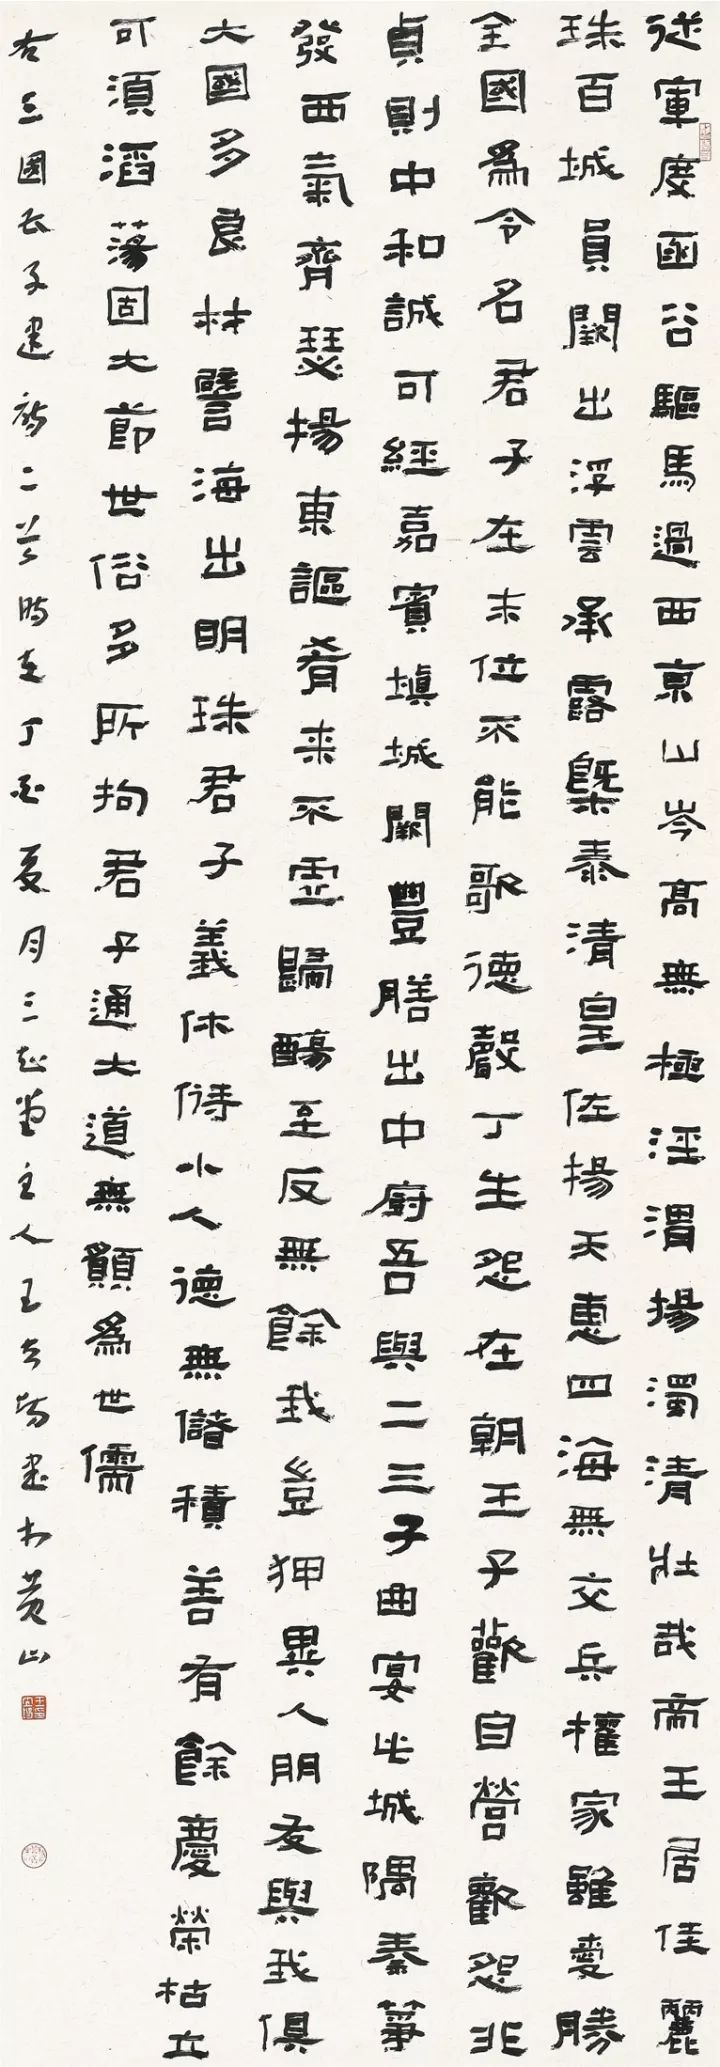 從軍度函谷驅馬過西京山岑高無極涇渭揚濁清壯哉帝王居佳麗
殊百城員闕出浮雲承露槩泰清皇佐揚天惠四海無交兵權家雖愛勝
全國爲令名君子在末位不能歌德聲丁生怨在朝王子歡自營歡怨非
貞則中和誠可經嘉賓填城闕豐膳出中廚吾與二三子曲宴此城隅秦箏
發西氣齊瑟揚東謳肴來不虛歸觴至反無餘我豈狎異人朋友與我俱
大國多良材譬海出明珠君子義休偫小人德無儲積善有餘慶榮枯立
可須滔蕩固大節世俗多所拘君子通大道無願爲世儒
右三國子建詩二首時在丁酉夏月三堂主人王書於黄山